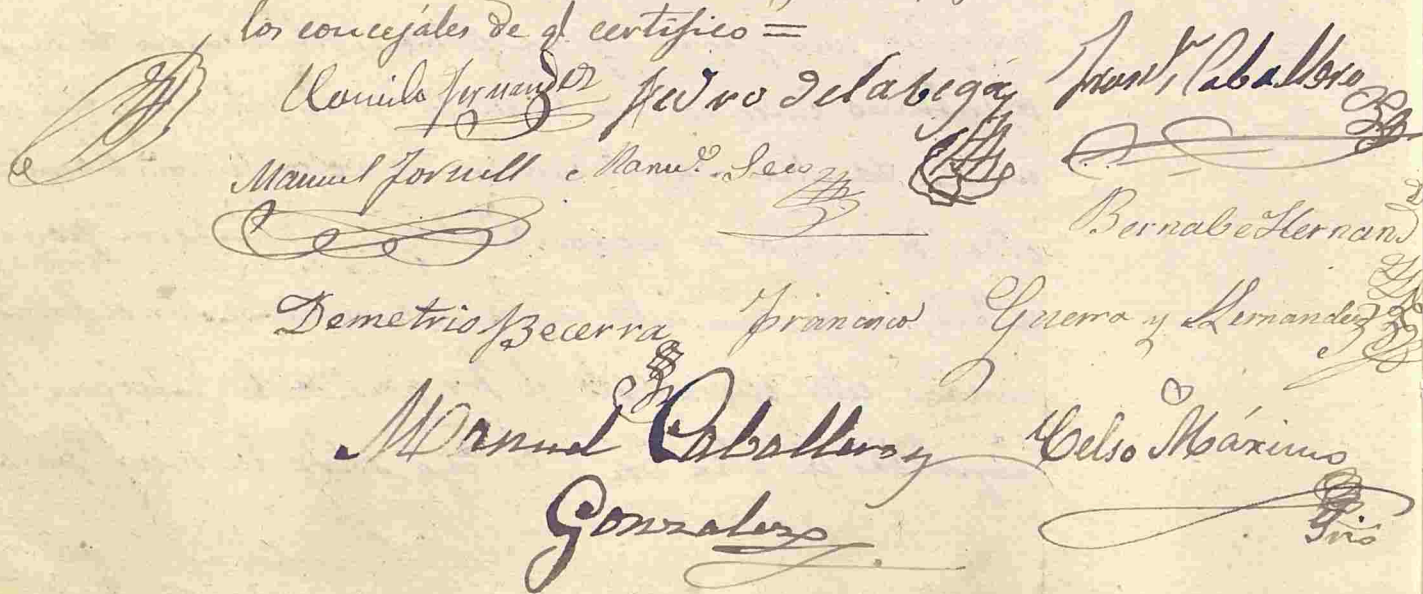 los concejáles de q̃ certifico =
Camilo Fernandez Pedro delabega Franc.º Caballero
Manuel Fornell Manu.l Seco
Bernabe Hernand.z
Demetrio Becerra Francisco Guerra y Hernandez
Manuel Caballero y Celso Máximo
Gonzalez Srio